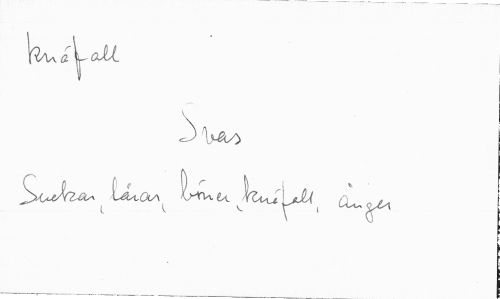 knäfall
Svas
Suckar, tårar, böner, knäfall, ånger